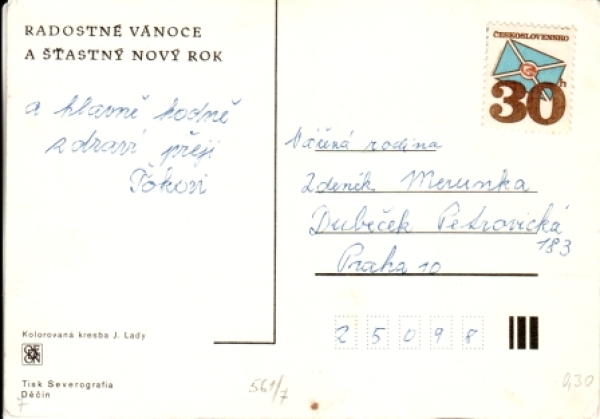 RADOSTNÉ VÁNOCE
A ŠŤASTNÝ NOVÝ ROK
a hlavně hodně
zdraví přejí
Tökovi
ČESKOSLOVENSKO
30 h
Vážená rodina
Zdeněk Merunka
Dubeček Petrovická
183
Praha 10
25098
Kolorovaná kresba J. Lady
Tisk Severografia
Děčín
7
561/7
0,30